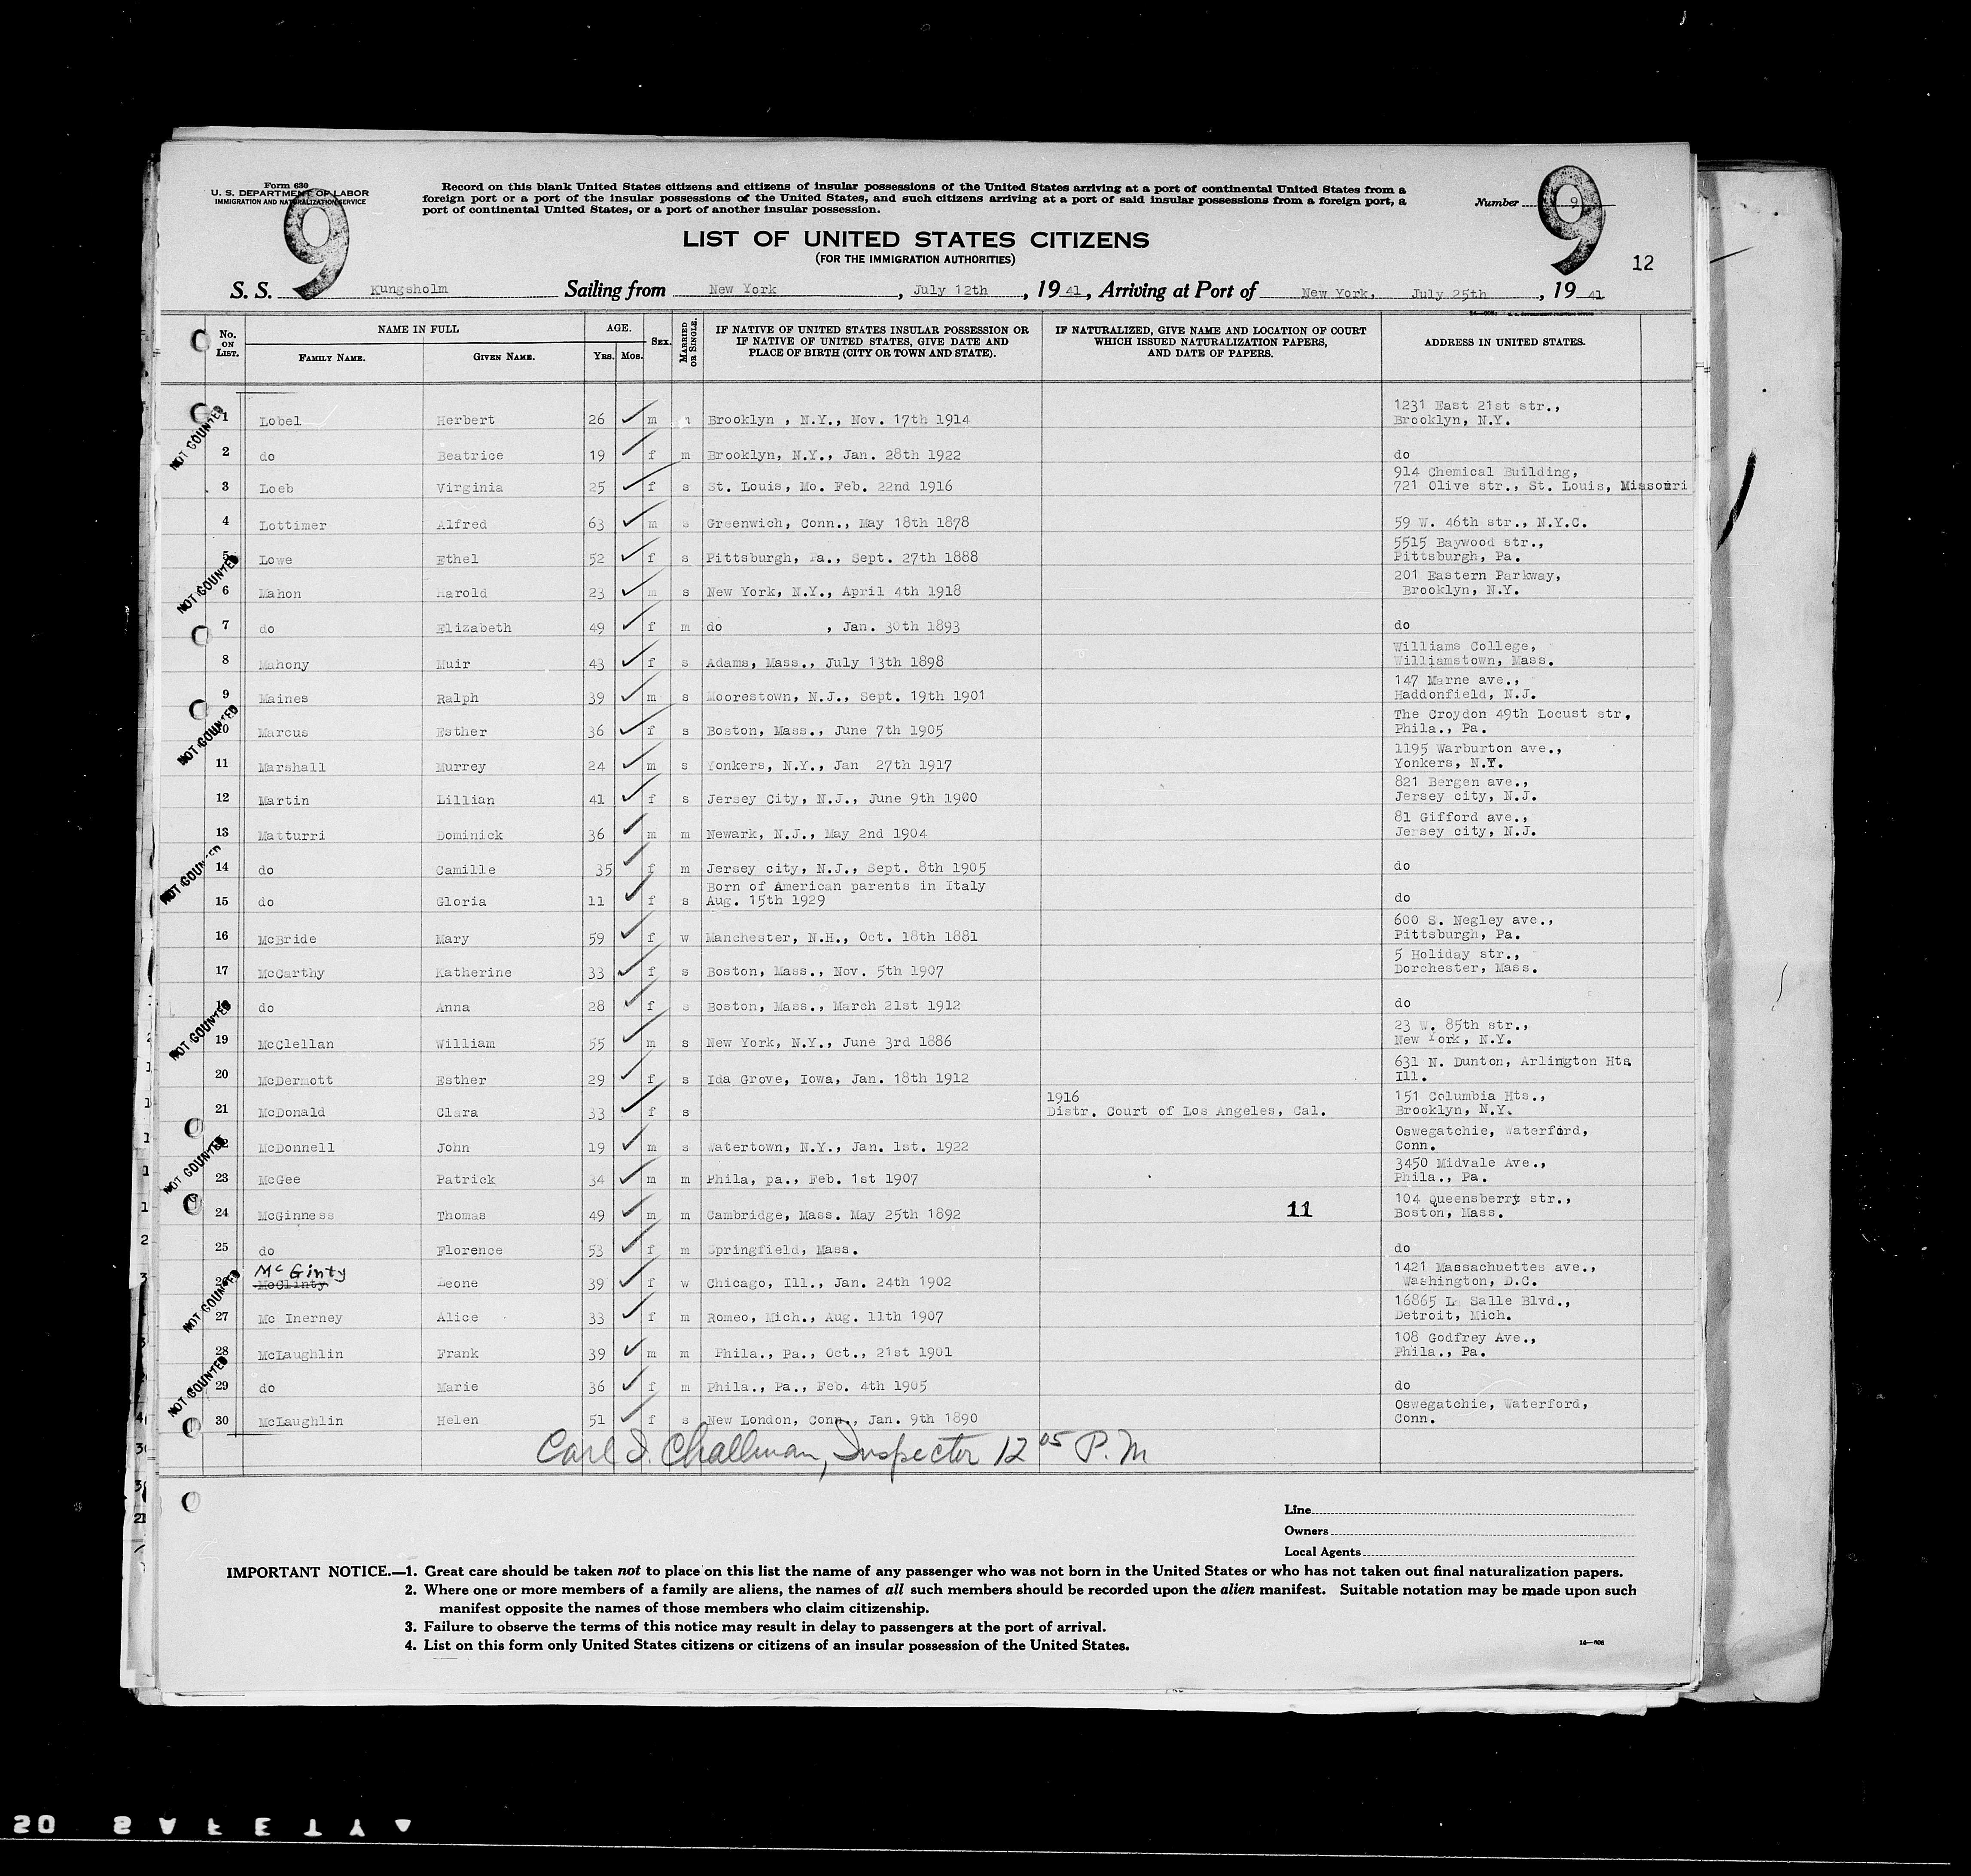 Form 630
U. S. DEPARTMENT OF LABOR
IMMIGRATION AND NATURALIZATION SERVICE
9
Record on this blank United States citizens and citizens of insular possessions of the United States arriving at a port of continental United States from a
foreign port or a port of the insular possessions of the United States, and such citizens arriving at a port of said insular possessions from a foreign port, a
port of continental United States, or a port of another insular possession.
Number 9
9
12
LIST OF UNITED STATES CITIZENS
(FOR THE IMMIGRATION AUTHORITIES)
S. S. Kungsholm Sailing from New York, July 12th, 1941, Arriving at Port of New York, July 25th, 1941
No. ON LIST. NAME IN FULL FAMILY NAME. GIVEN NAME. AGE. Yrs. Mos. Sex. MARRIED OR SINGLE. IF NATIVE OF UNITED STATES INSULAR POSSESSION OR IF NATIVE OF UNITED STATES, GIVE DATE AND PLACE OF BIRTH (CITY OR TOWN AND STATE). IF NATURALIZED, GIVE NAME AND LOCATION OF COURT WHICH ISSUED NATURALIZATION PAPERS, AND DATE OF PAPERS. ADDRESS IN UNITED STATES.
NOT COUNTED
1 Lobel Herbert 26 m Brooklyn , N.Y., Nov. 17th 1914 1231 East 21st str., Brooklyn, N.Y.
2 do Beatrice 19 f m Brooklyn, N.Y., Jan. 28th 1922 do
3 Loeb Virginia 25 f s St. Louis, Mo. Feb. 22nd 1916 914 Chemical Building, 721 Olive str., St. Louis, Missouri
4 Lottimer Alfred 63 m s Greenwich, Conn., May 18th 1878 59 W. 46th str., N.Y.C.
NOT COUNTED
5 Lowe Ethel 52 f s Pittsburgh, Pa., Sept. 27th 1888 5515 Baywood str., Pittsburgh, Pa.
6 Mahon Harold 23 m s New York, N.Y., April 4th 1918 201 Eastern Parkway, Brooklyn, N.Y.
7 do Elizabeth 49 f m do , Jan. 30th 1893 do
8 Mahony Muir 43 f s Adams, Mass., July 13th 1898 Williams College, Williamstown, Mass.
9 Maines Ralph 39 m s Moorestown, N.J., Sept. 19th 1901 147 Marne ave., Haddonfield, N.J.
NOT COUNTED
10 Marcus Esther 36 f s Boston, Mass., June 7th 1905 The Croydon 49th Locust str, Phila., Pa.
11 Marshall Murrey 24 m s Yonkers, N.Y., Jan 27th 1917 1195 Warburton ave., Yonkers, N.Y.
12 Martin Lillian 41 f s Jersey City, N.J., June 9th 1900 821 Bergen ave., Jersey city, N.J.
13 Matturri Dominick 36 m m Newark, N.J., May 2nd 1904 81 Gifford ave., Jersey city, N.J.
NOT COUNTED
14 do Camille 35 f m Jersey city, N.J., Sept. 8th 1905 do
15 do Gloria 11 f s Born of American parents in Italy Aug. 15th 1929 do
16 McBride Mary 59 f w Manchester, N.H., Oct. 18th 1881 600 S. Negley ave., Pittsburgh, Pa.
17 McCarthy Katherine 33 f s Boston, Mass., Nov. 5th 1907 5 Holiday str., Dorchester, Mass.
NOT COUNTED
18 do Anna 28 f s Boston, Mass., March 21st 1912 do
19 McClellan William 55 m s New York, N.Y., June 3rd 1886 23 W. 85th str., New York, N.Y.
20 McDermott Esther 29 f s Ida Grove, Iowa, Jan. 18th 1912 631 N. Dunton, Arlington Hts. Ill.
21 McDonald Clara 33 f s 1916 Distr. Court of Los Angeles, Cal. 151 Columbia Hts., Brooklyn, N.Y.
NOT COUNTED
22 McDonnell John 19 m s Watertown, N.Y., Jan. 1st. 1922 Oswegatchie, Waterford, Conn.
23 McGee Patrick 34 m m Phila, pa., Feb. 1st 1907 3450 Midvale Ave., Phila., Pa.
24 McGinness Thomas 49 m m Cambridge, Mass. May 25th 1892 11 104 Queensberry str., Boston, Mass.
25 do Florence 53 f m Springfield, Mass. do
NOT COUNTED
McGinty
26 McClinty Leone 39 f w Chicago, Ill., Jan. 24th 1902 1421 Massachuettes ave., Washington, D.C.
27 Mc Inerney Alice 33 f m Romeo, Mich., Aug. 11th 1907 16865 La Salle Blvd., Detroit, Mich.
28 McLaughlin Frank 39 m m Phila., Pa., Oct., 21st 1901 108 Godfrey Ave., Phila., Pa.
NOT COUNTED
29 do Marie 36 f m Phila., Pa., Feb. 4th 1905 do
30 McLaughlin Helen 51 f s New London, Conn., Jan. 9th 1890 Oswegatchie, Waterford, Conn.
Carl I. Challman, Inspector 12 05 P.M
Line
Owners
Local Agents
IMPORTANT NOTICE.—1. Great care should be taken not to place on this list the name of any passenger who was not born in the United States or who has not taken out final naturalization papers.
2. Where one or more members of a family are aliens, the names of all such members should be recorded upon the alien manifest. Suitable notation may be made upon such
manifest opposite the names of those members who claim citizenship.
3. Failure to observe the terms of this notice may result in delay to passengers at the port of arrival.
4. List on this form only United States citizens or citizens of an insular possession of the United States.
14—606
SAFETY